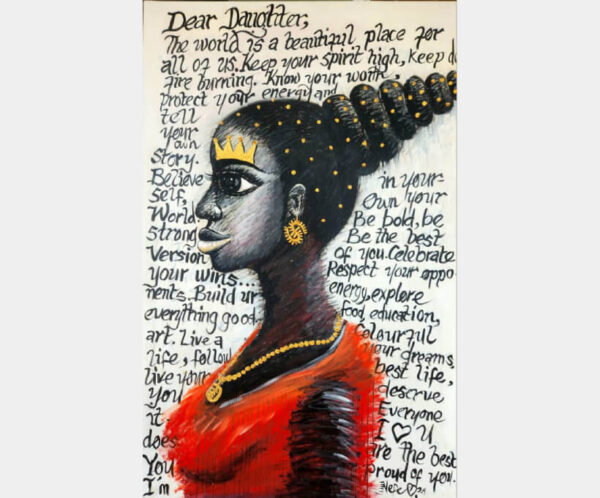 Dear Daughter,
The world is a beautiful place for
all of us. Keep your spirit high, keep d
fire burning. Know your worth,
protect your energy and
tell
your
own
story.
Believe in your
self, Own your
World. Be bold, be
Strong Be the best
Version of you. Celebrate
your wins... Respect your oppo
nents. Build ur energy, explore
everything good food, education,
art. Live a Colourful
life, follow your dreams
live your best life,
You deserve
it Everyone
does I ♡ U
You are the best
I'm proud of you.